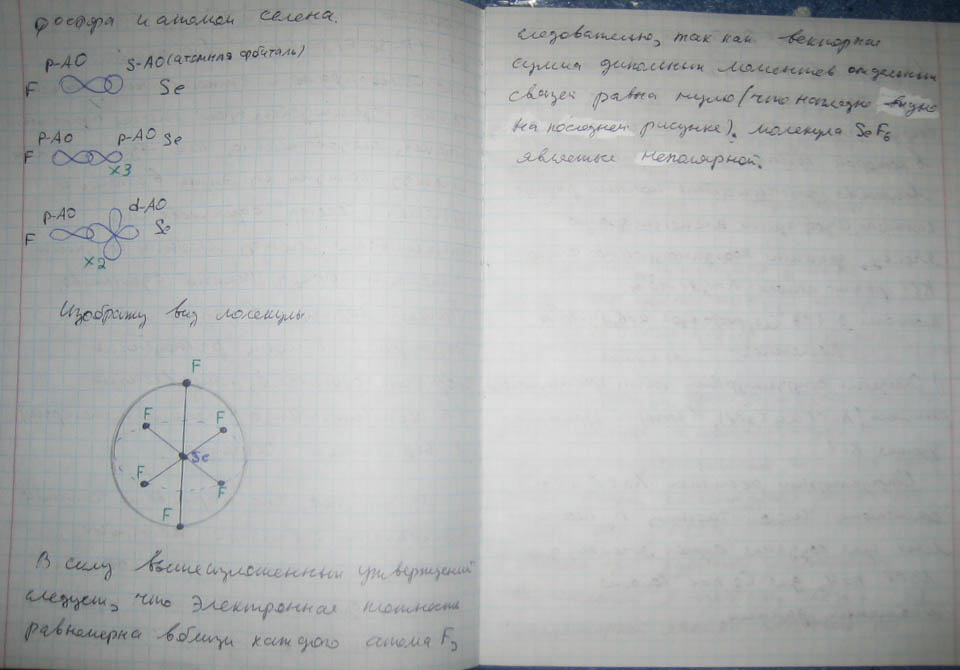 фосфора и атомом селена.
p-AO s-AO (атомная орбиталь)
F Se
p-AO p-AO Se
F
×3
p-AO d-AO
F Se
×2
Изображу вид молекулы
F
F F
Se
F F
F
В силу вышеизложенных утверждений
следует, что электронная плотность
равномерна вблизи каждого атома F,
следовательно, так как векторная
сумма дипольных моментов отдельных
связей равна нулю (что наглядно видно
на последнем рисунке), молекула SeF6
является неполярной.